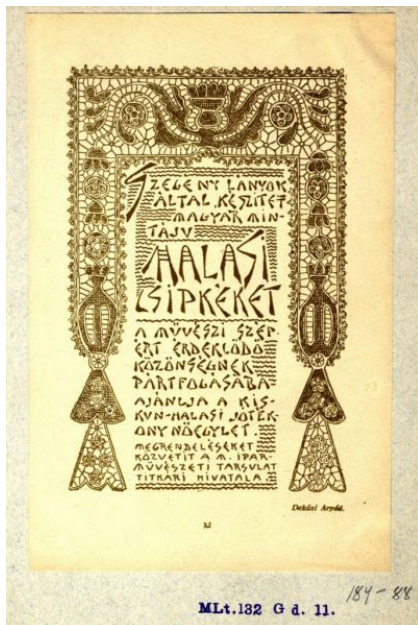 SZEGENY LÁNYOK
ÁLTAL KÉSZITET
MAGYAR MIN-
TÁJU
HALASI
CSIPKÉKET
A MŰVÉSZI SZÉP
ÉRT ÉRDEKLŐDŐ
KÖZÖNSÉGNEK
PÁRTFOGÁSÁBA
AJÁNLJA A KIS-
KUN-HALASI JÓTÉK-
ONY NŐEGYLET.
MEGRENDELÉSEKET
KÖZVETIT A M. IPAR-
MŰVÉSZETI TARSULAT
TITKÁRI HIVATALA.
Dekáni Árpád.
184-88
MLt.132 G d. 11.